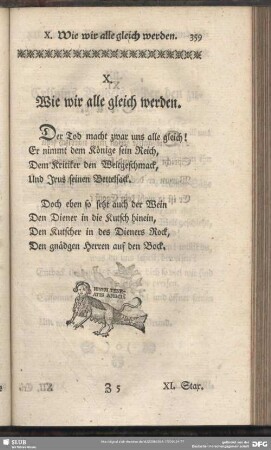 X. Wie wir alle gleich werden. 359
X.
Wie wir alle gleich werden.
Der Tod macht zwar uns alle gleich!
Er nimmt dem Könige sein Reich,
Dem Kritiker den Weltgeschmack,
Und Irus seinen Bettelsack.
Doch eben so setzt auch der Wein
Den Diener in die Kutsch hinein,
Den Kutscher in des Dieners Rock,
Den gnädgen Herren auf den Bock.
Z 5
XI. Stax.
SLUB
DFG